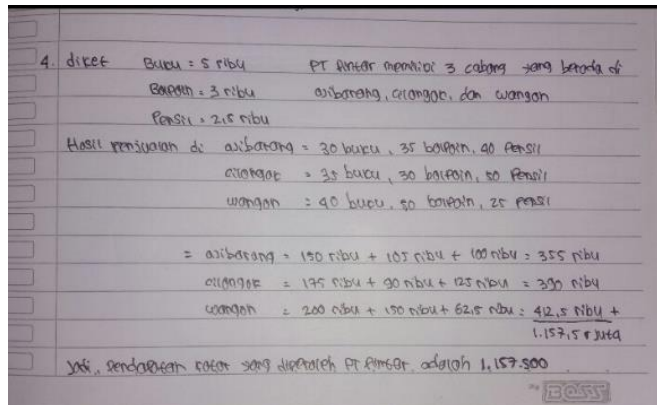 4. diket Buku = 5 ribu PT Pintar memiliki 3 cabang yang berada di
Bolpoin = 3 ribu ajibarang, cilongok, dan wangon
Pensil = 2,5 ribu
Hasil penjualan di ajibarang = 30 buku, 35 bolpoin, 40 Pensil
cilongok = 35 buku, 30 bolpoin, 50 Pensil
wangon = 40 buku, 50 bolpoin, 25 pensil
= ajibarang = 150 ribu + 105 ribu + 100 ribu = 355 ribu
cilongok = 175 ribu + 90 ribu + 125 ribu = 390 ribu
wangon = 200 ribu + 150 ribu + 62,5 ribu = 412,5 ribu +
1.157,5 juta
Jadi, Pendapatan kotor yang diperoleh PT Pintar, adalah 1.157.500
BOSS